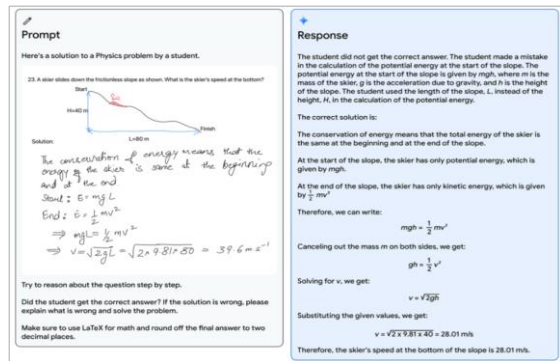 Prompt
Here's a solution to a Physics problem by a student.
23. A skier slides down the frictionless slope as shown. What is the skier's speed at the bottom?
Start
H=40 m
Finish
L=80 m
Solution:
The conservation of energy means that the
energy of the skier is same at the beginning
and at the end
Start: E = mgL
End: E = 1/2 mv²
⇒ mgL = 1/2 mv²
⇒ v = √2gL = √2×9.81×80 = 39.6 ms⁻¹
Try to reason about the question step by step.
Did the student get the correct answer? If the solution is wrong, please
explain what is wrong and solve the problem.
Make sure to use LaTeX for math and round off the final answer to two
decimal places.
Response
The student did not get the correct answer. The student made a mistake
in the calculation of the potential energy at the start of the slope. The
potential energy at the start of the slope is given by mgh, where m is the
mass of the skier, g is the acceleration due to gravity, and h is the height
of the slope. The student used the length of the slope, L, instead of the
height, H, in the calculation of the potential energy.
The correct solution is:
The conservation of energy means that the total energy of the skier is
the same at the beginning and at the end of the slope.
At the start of the slope, the skier has only potential energy, which is
given by mgh.
At the end of the slope, the skier has only kinetic energy, which is given
by 1/2 mv²
Therefore, we can write:
mgh = 1/2 mv²
Canceling out the mass m on both sides, we get:
gh = 1/2 v²
Solving for v, we get:
v = √2gh
Substituting the given values, we get:
v = √2 x 9.81 x 40 = 28.01 m/s
Therefore, the skier's speed at the bottom of the slope is 28.01 m/s.